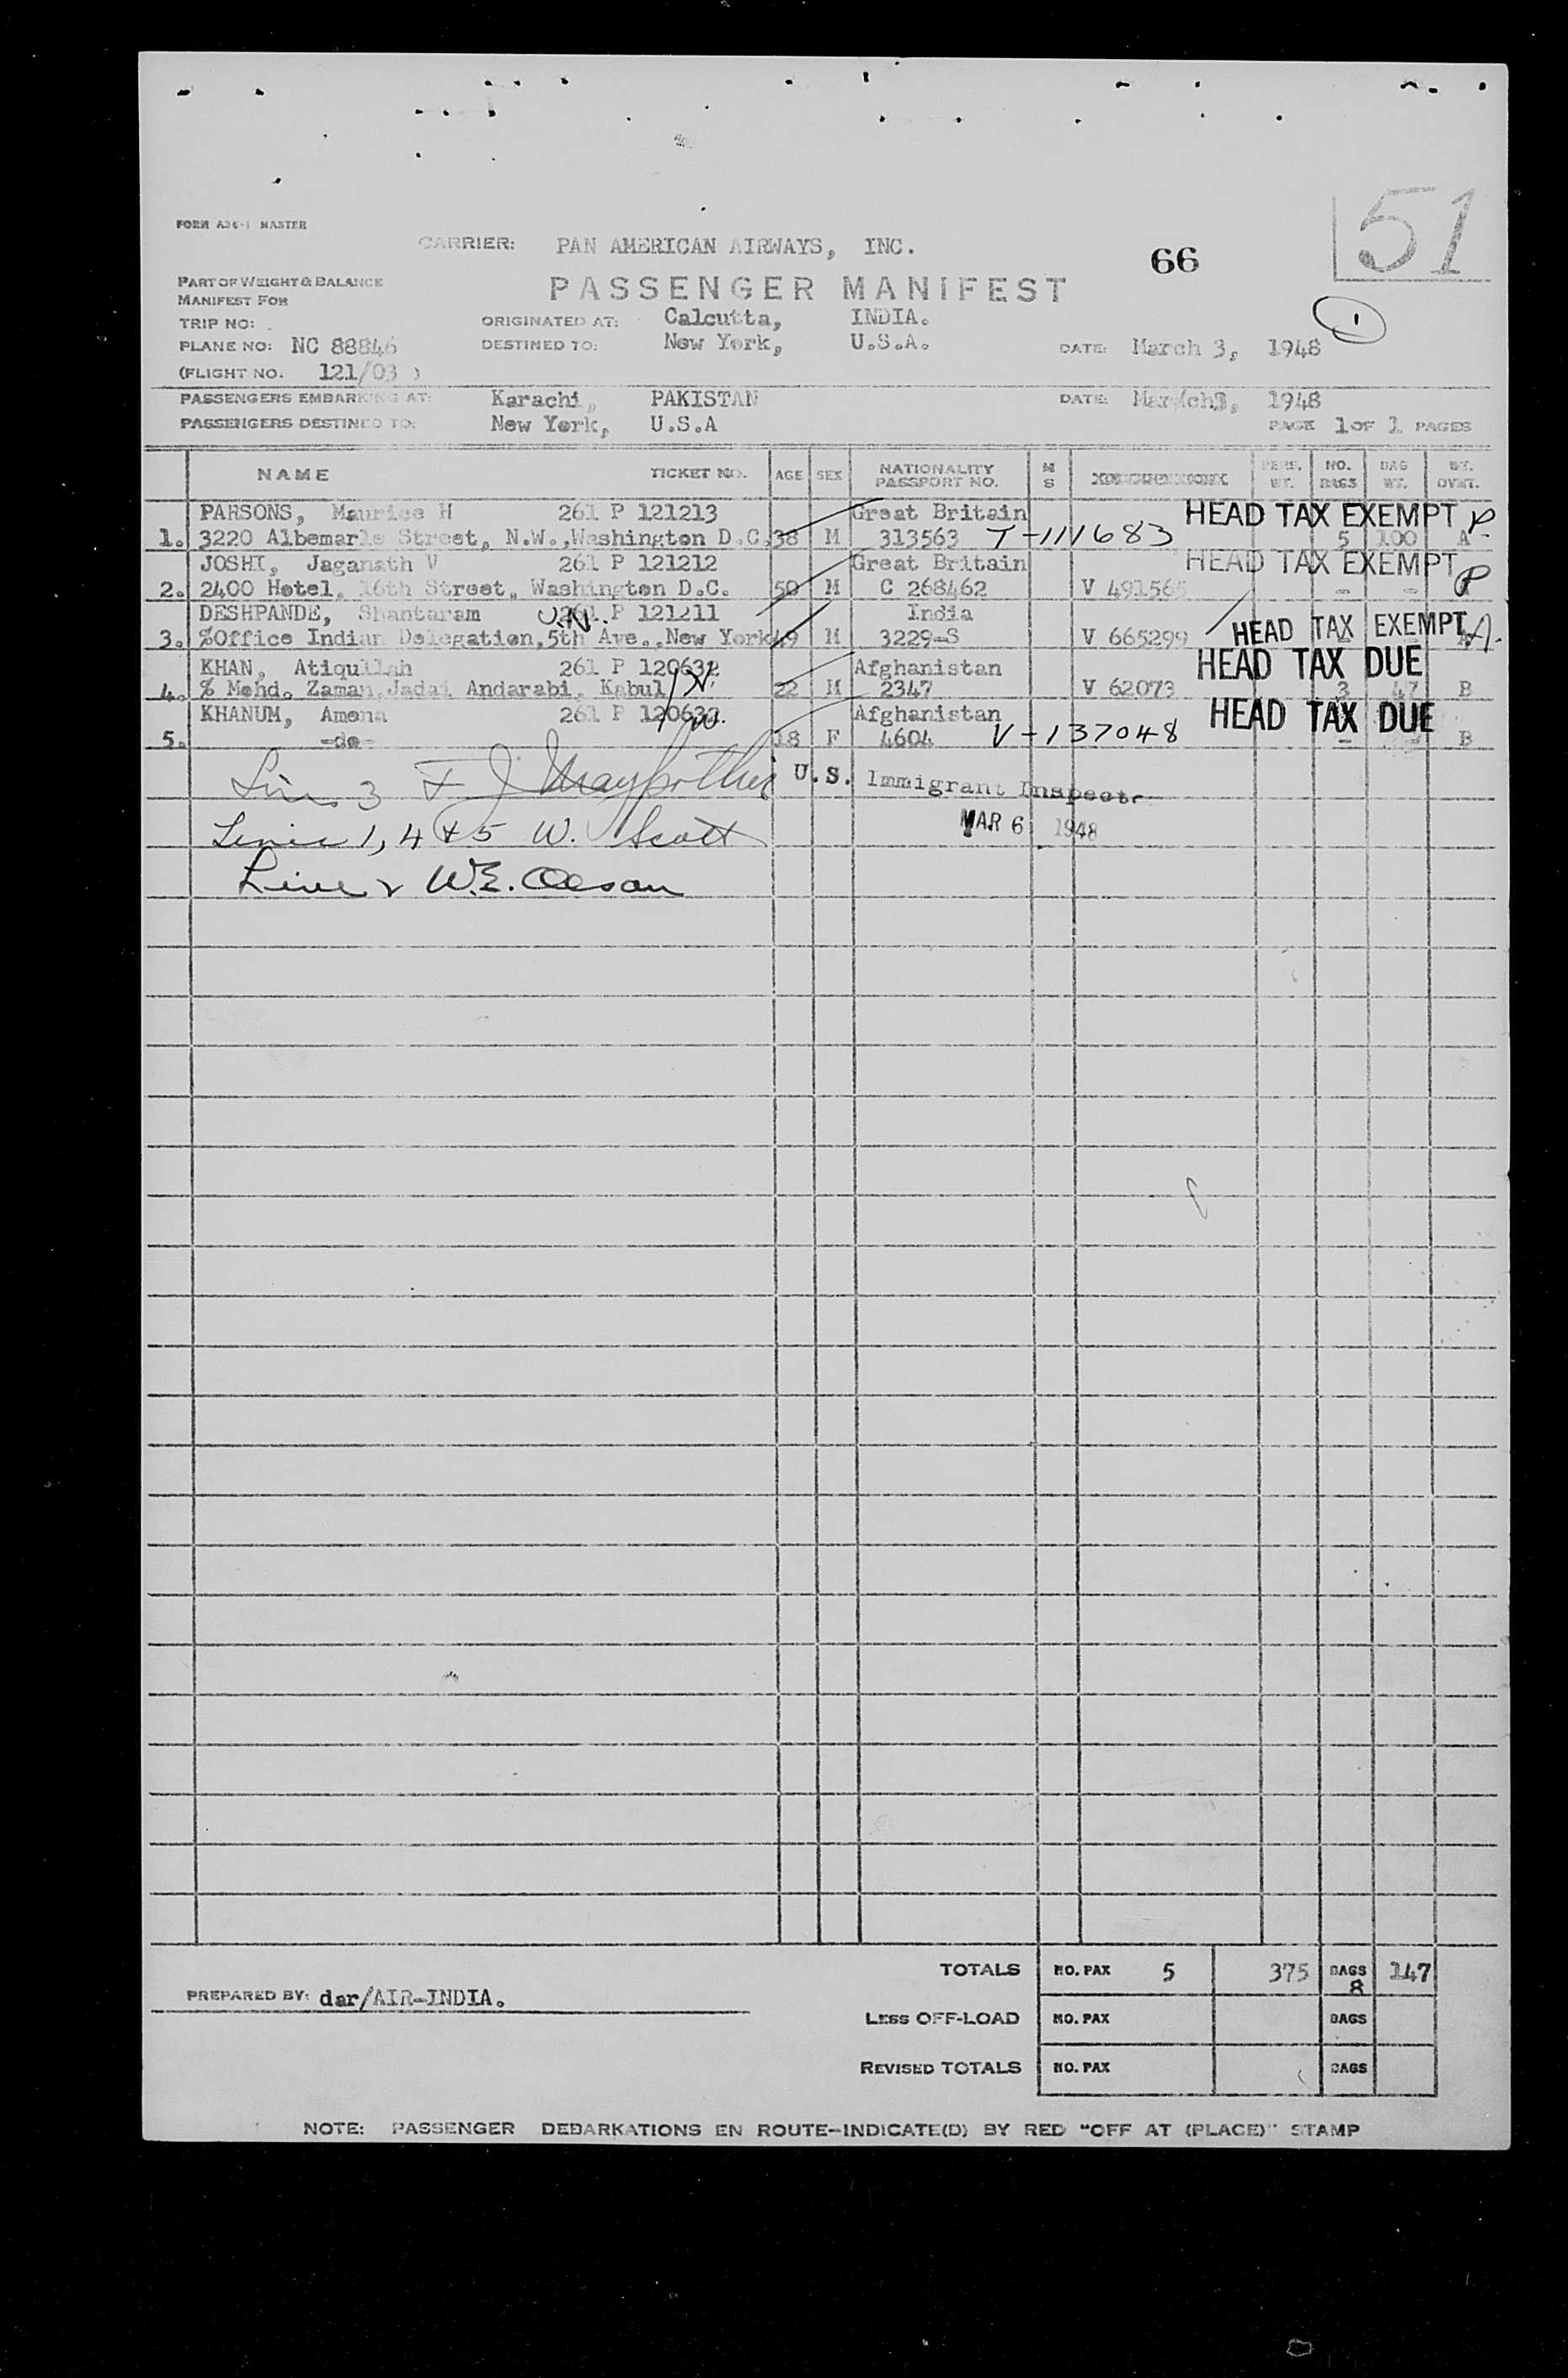 51
FORM A36-1 MASTER
CARRIER: PAN AMERICAN AIRWAYS, INC.
66
PART OF WEIGHT & BALANCE
MANIFEST FOR
PASSENGER MANIFEST
1
TRIP NO: .
ORIGINATED AT: Calcutta, INDIA.
PLANE NO: NC 88846
DESTINED TO: New York, U.S.A.
DATE: March 3, 1948
(FLIGHT NO. 121/03 )
PASSENGERS EMBARKING AT: Karachi, PAKISTAN
DATE: March 3, 1948
PASSENGERS DESTINED TO: New York, U.S.A
PAGE 1 OF 1 PAGES
NAME TICKET NO. AGE SEX NATIONALITY PASSPORT NO. M S PERS. WT. NO. BAGS BAG WT. WT. OVWT.
PARSONS, Maurice H 261 P 121213 Great Britain HEAD TAX EXEMPT P
1. 3220 Albemarle Street, N.W.,Washington D.C. 38 M 313563 T-1111683 5 100 A
JOSHI, Jaganath V 261 P 121212 Great Britain HEAD TAX EXEMPT P
2. 2400 Hotel, 16th Street, Washington D.C. 50 M C 268462 V 491565 - -
DESHPANDE, Shantaram U.N. 261 P 121211 India
3. %Office Indian Delegation,5th Ave.,New York 49 M 3229-S V 665299 HEAD TAX EXEMPT A.
KHAN, Atiqullah 261 P 120632 Afghanistan HEAD TAX DUE
4. % Mohd. Zaman,Jadai Andarabi, Kabul 22 M 2347 V 62073 3 47 B
KHANUM, Amena 261 P 120632 Afghanistan HEAD TAX DUE
5. -do- 18 F 4604 V-137048 - B
Line 3 F J
U.S. Immigrant Inspector
Lines 1, 4 + 5 W. Scott
MAR 6 1948
Line 2 W.E. Olson
TOTALS NO. PAX 5 375 BAGS 8 147
PREPARED BY: dar/AIR-INDIA.
LESS OFF-LOAD NO. PAX BAGS
REVISED TOTALS NO. PAX BAGS
NOTE: PASSENGER DEBARKATIONS EN ROUTE-INDICATE(D) BY RED "OFF AT (PLACE)" STAMP